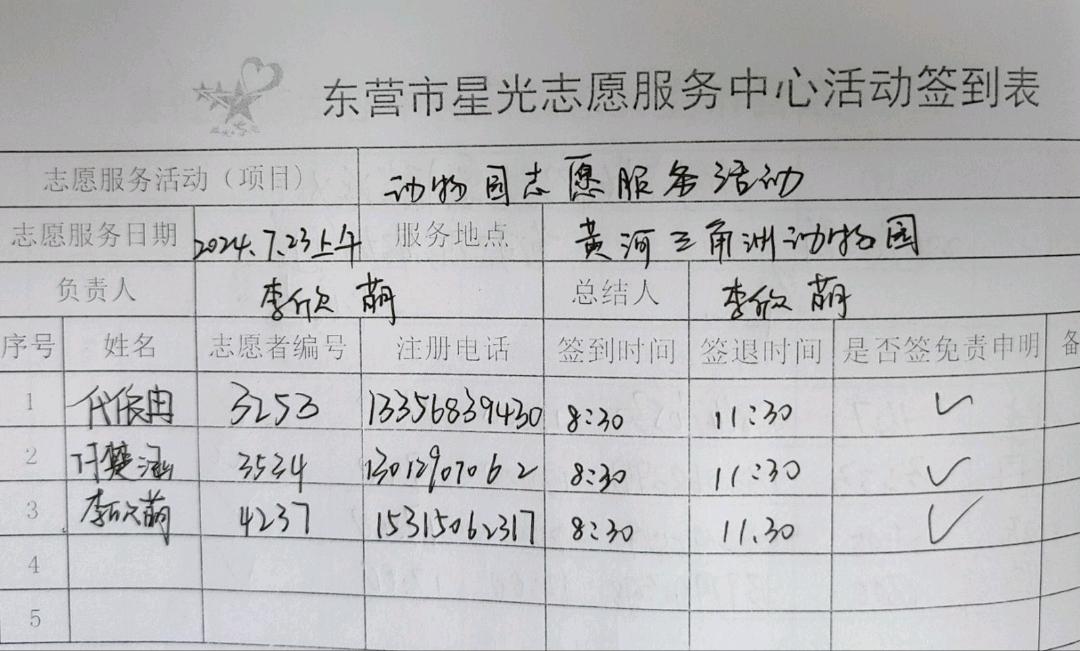 东营市星光志愿服务中心活动签到表
志愿服务活动（项目） 动物园志愿服务活动
志愿服务日期 2024.7.23上午 服务地点 黄河三角洲动物园
负责人 李欣萌 总结人 李欣萌
序号 姓名 志愿者编号 注册电话 签到时间 签退时间 是否签免责申明 备
1 代依冉 3253 13356839430 8:30 11:30 ✓
2 楚涵 3534 13012907062 8:30 11:30 ✓
3 李欣萌 4237 15315062317 8:30 11.30 ✓
4
5